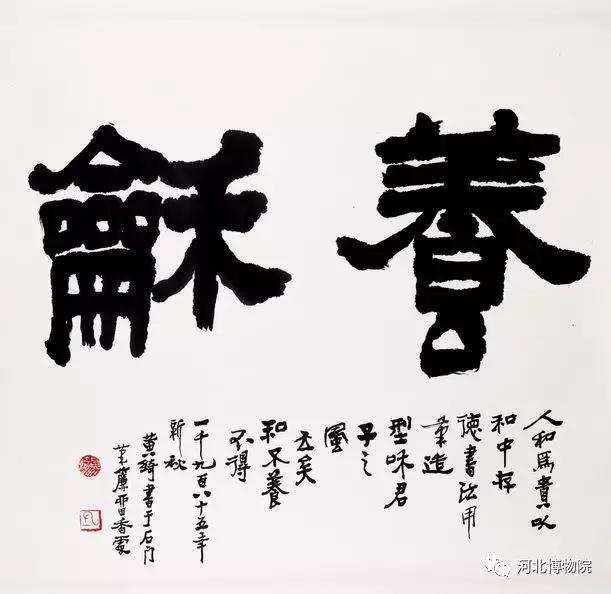 養龢
人和為貴以
和中存
德書法用
筆造
型味君
子之
風
矣
和不養
不得
一千九百八十五年
新秋
黄綺書于石门
香
河北博物院